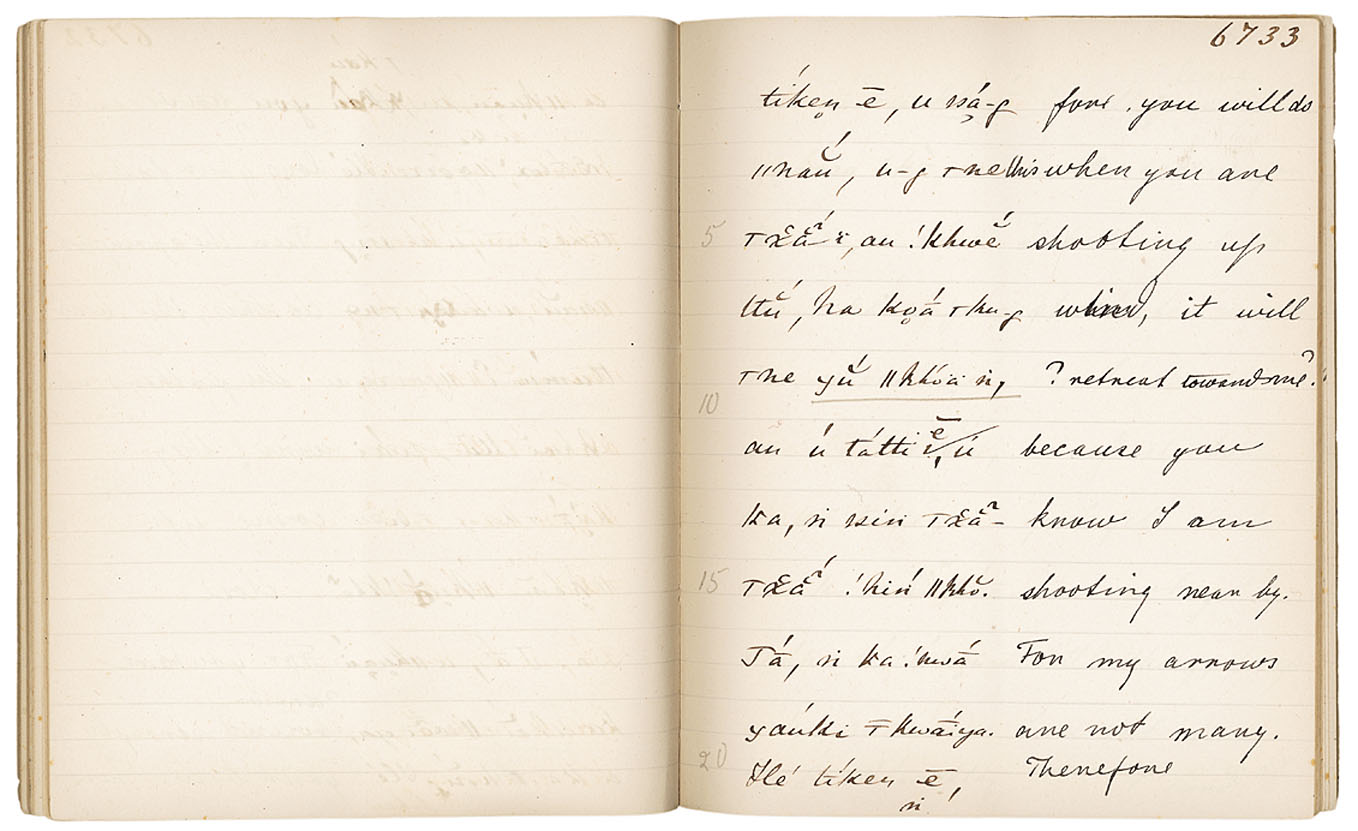 6733
tíken̥ ē, u ssá-g fore you will do
ǁnaŭ́, u-g ꞇne this when you are
5 ꞇxãã́ ĭ, au !khwĕ́ shooting up
ttŭ́, ha ko̥á ꞇku-g wind, it will
ꞇne yŭ́ ǁkhóä si, ? retreat towards me?
10
au ú tátti ē, ú because you
ka, si ssin ꞇxãã́- know I am
15 ꞇxãã́ !hiń ǁkhŏ. shooting near by.
Tā́, si ka !nwā́ For my arrows
yáuki ꞇkwaíya. are not many.
20 Hé tíken ē, Therefore
si